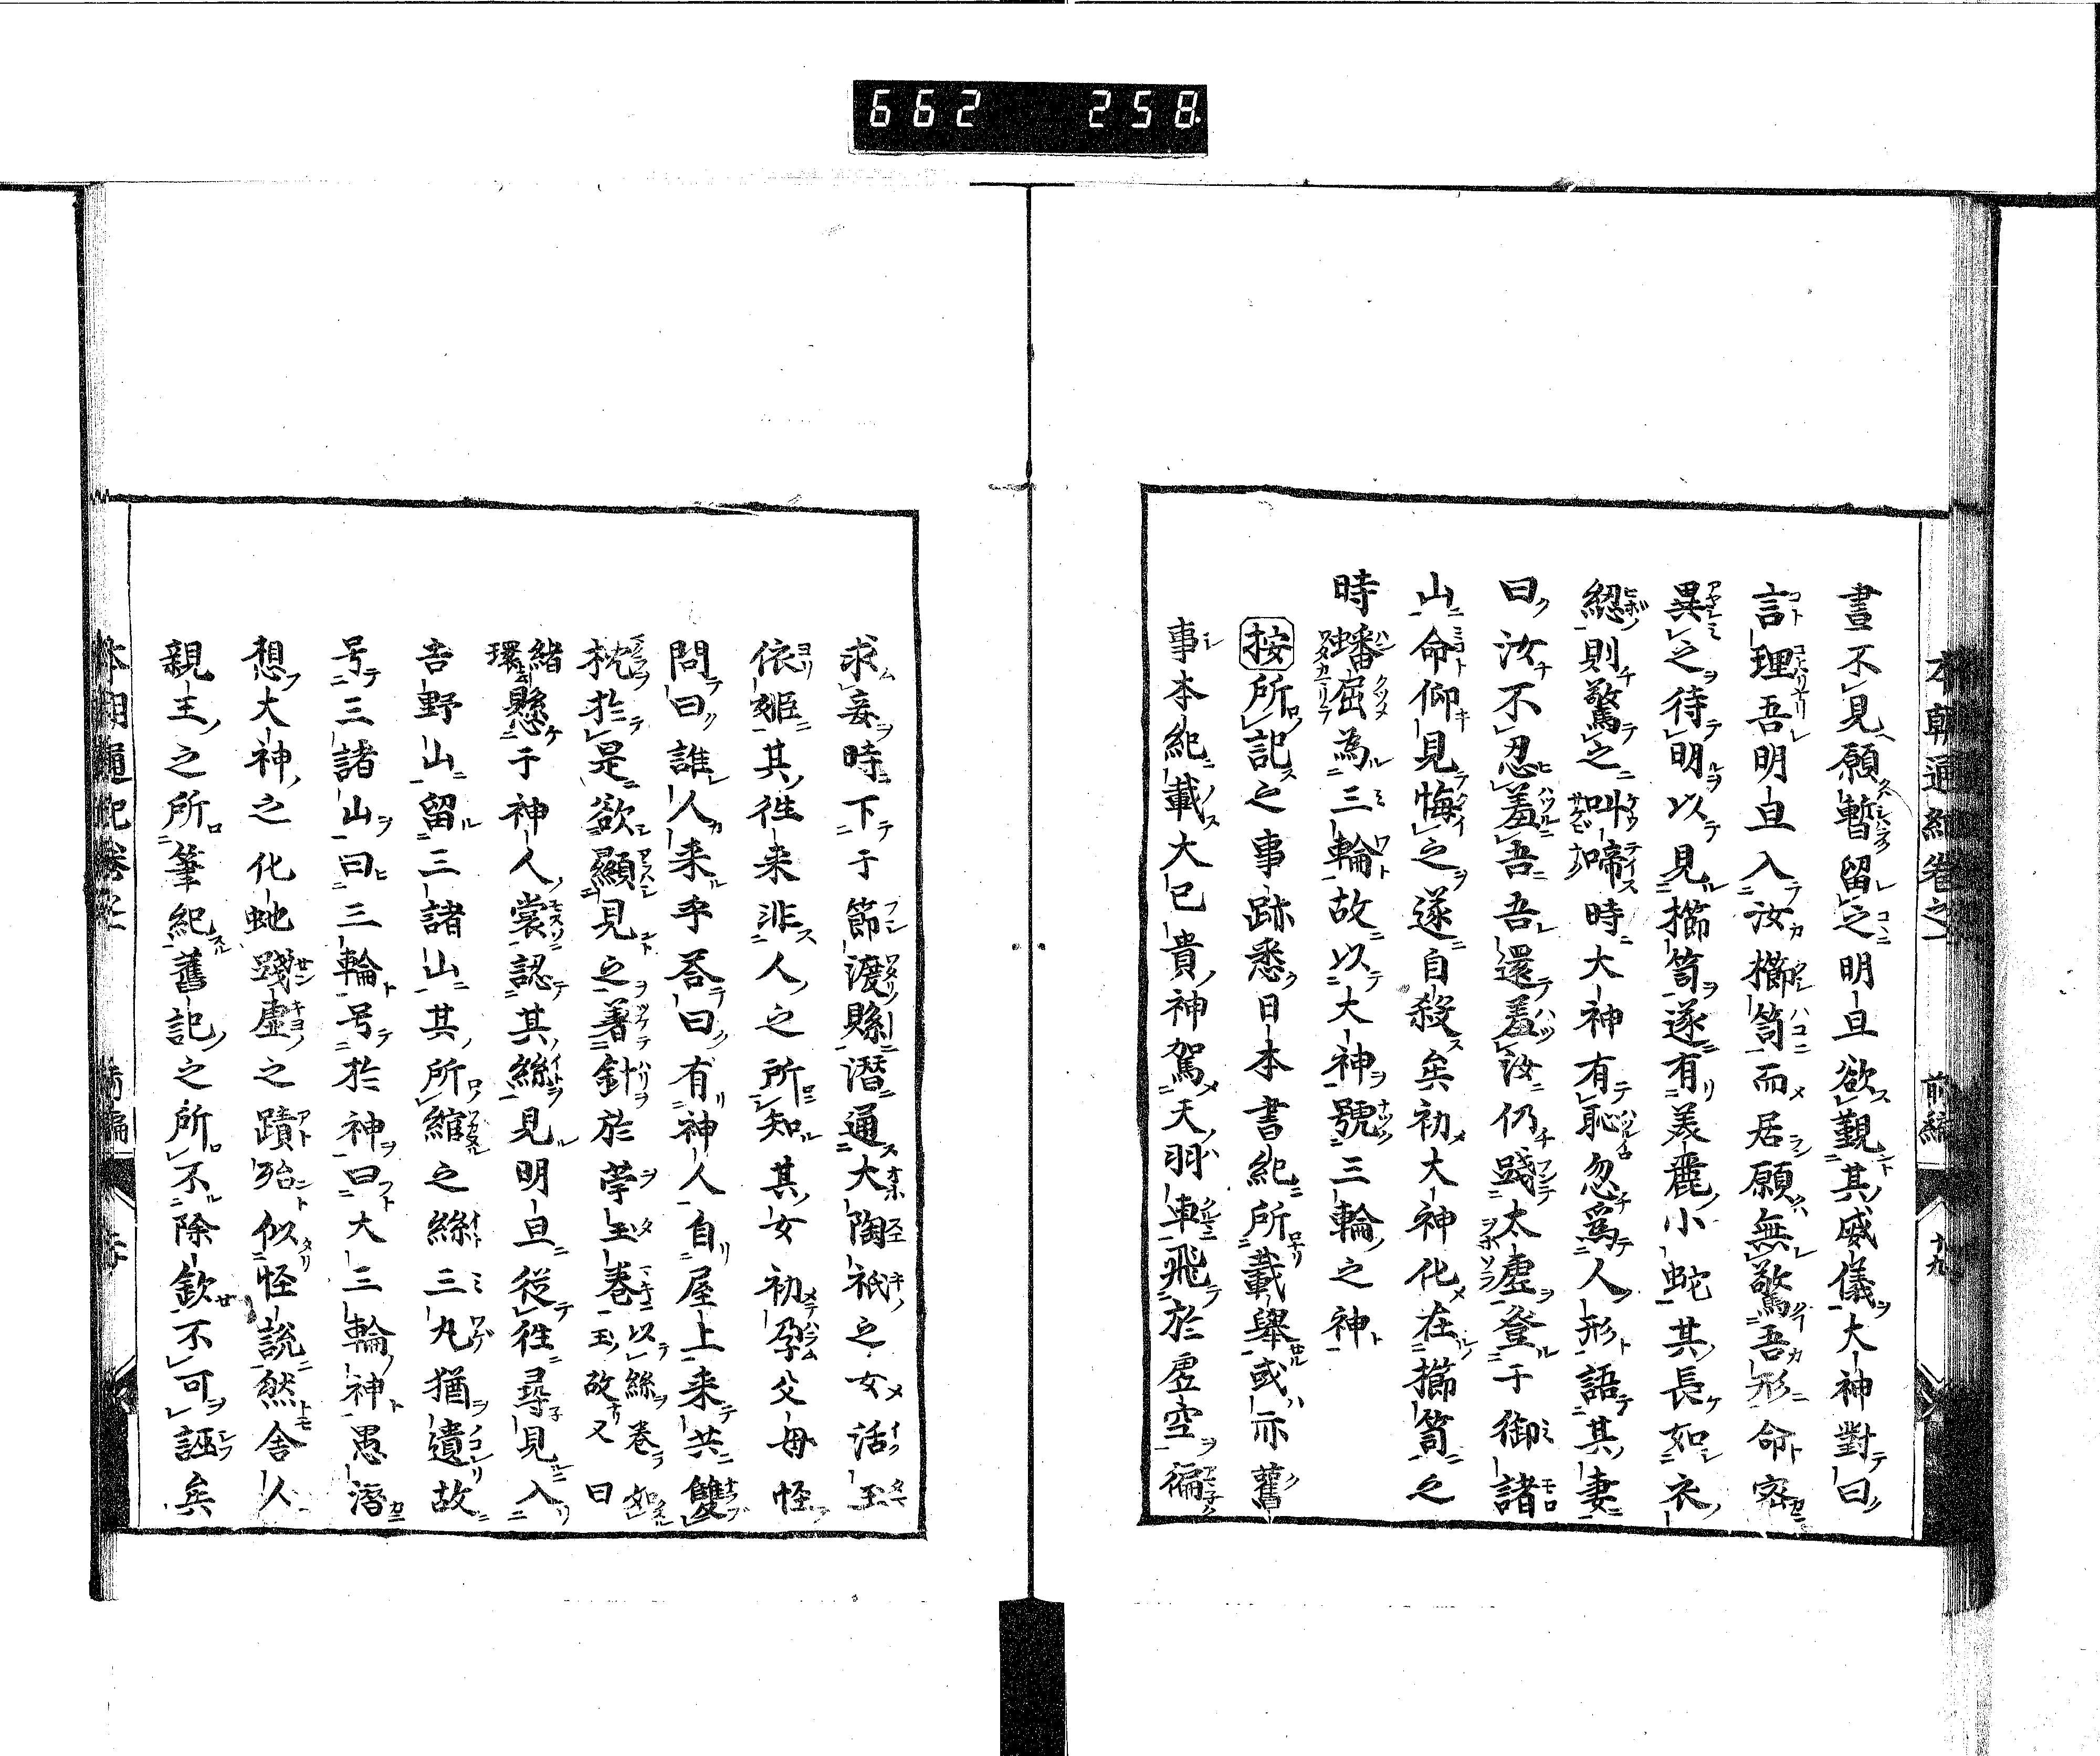 662 258
本朝通紀卷之一 前編 十九
晝不見願暫留之明旦欲覲其威儀大神對曰
言理吾明旦入汝櫛笥而居願無驚吾形命密
異之待明以見櫛笥遂有美麗小蛇其長如衣
紐則驚之叫啼時大神有恥忽爲人形語其妻
曰汝不忍羞吾吾還羞汝仍踐太虛登于御諸
山命仰見悔之遂自殺矣初大神化在櫛笥之
時蟠屈為三輪故以大神號三輪之神
按所記之事跡悉日本書紀所載舉或亦舊
事本紀載大己貴神駕天羽車飛於虛空徧
求妾時下于節渡縣潛通大陶祇之女活玉
依姬其往来非人之所知其女初孕父母怪
問曰誰人来乎荅曰有神人自屋上来共雙
枕於是欲顯見之著針於苧玉卷以絲卷如玉故又曰
緒環懸于神人裳認其絲見明旦從往尋見入
吉野山留三諸山其所綰之絲三丸猶遺故
号三諸山曰三輪号於神曰大三輪神愚潛
想大神之化虵踐虛之蹟殆似怪説然舍人
親王之所筆紀舊記之所不除欽不可誣矣